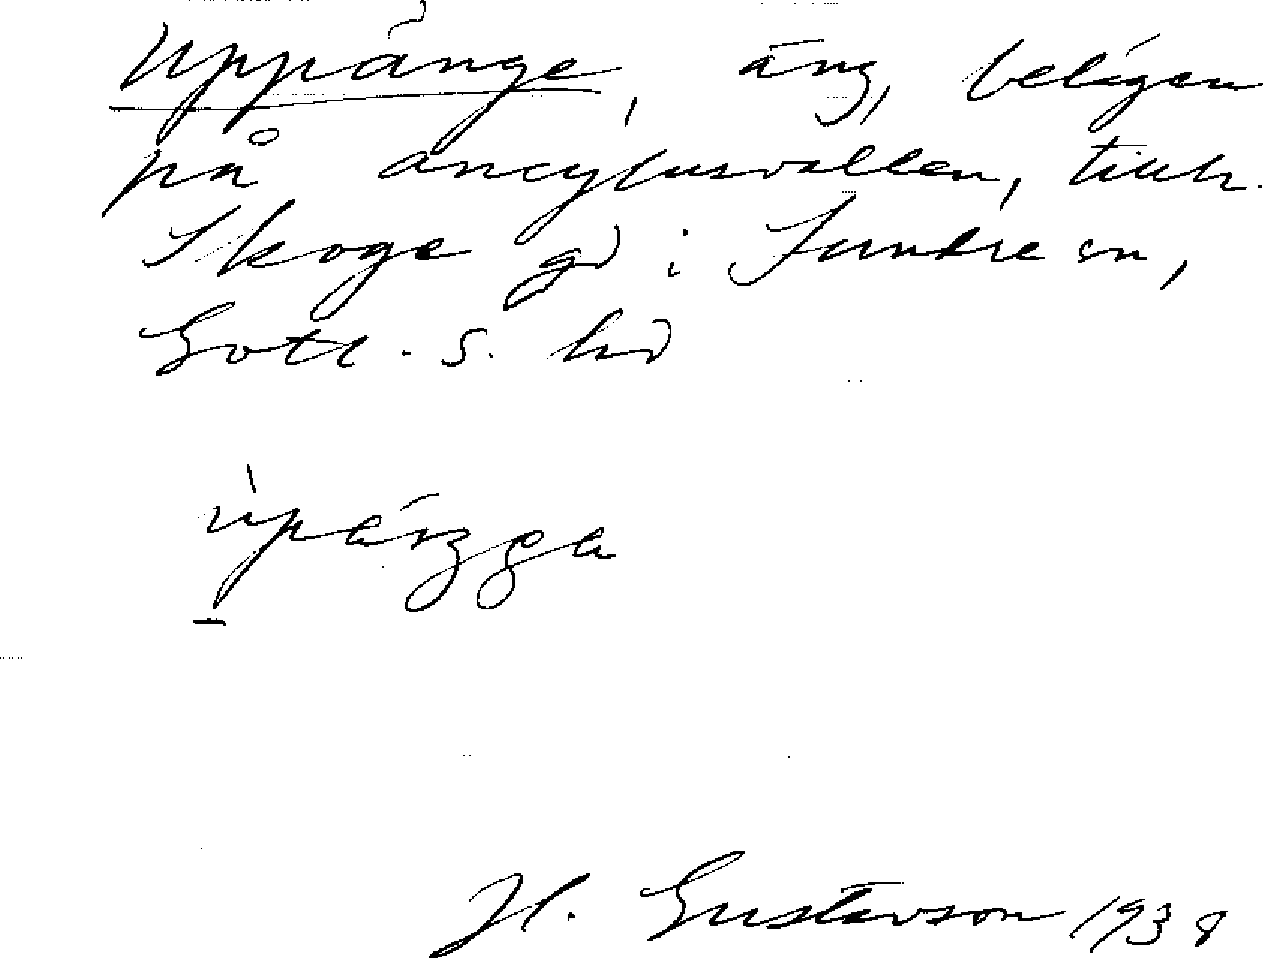 Uppänge, äng, belägen
på ancylusvallen, tillh.
Skoge gd i Sundre sn,
Gotl. S. hd
H. Gustavson 1938